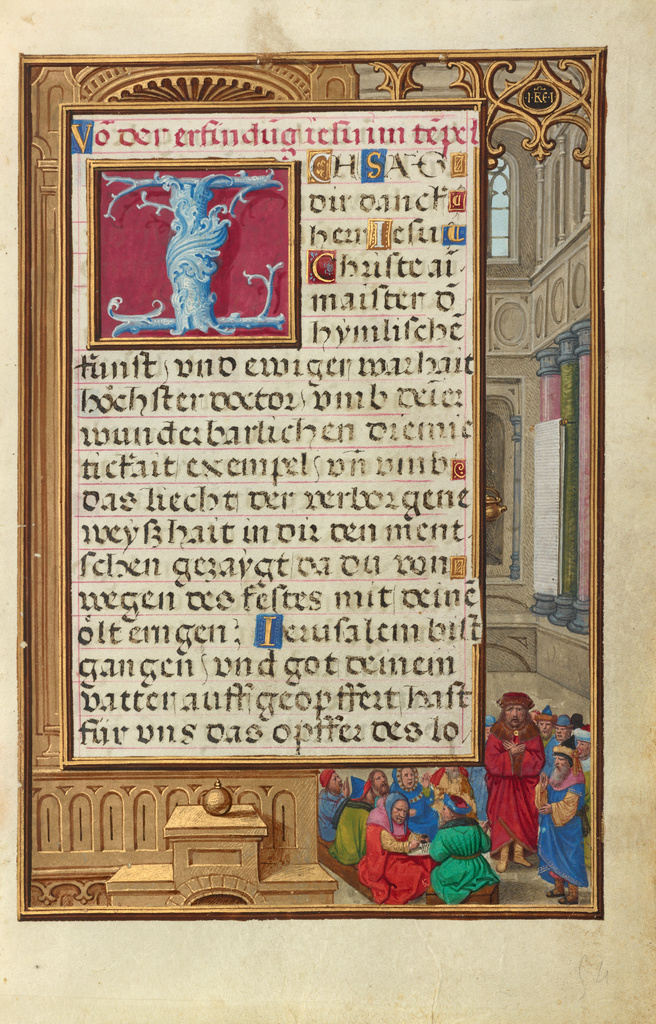 Vō der erfindūg iesu im tēpel
ICH SAG
dir danck
herr Iesu
Christe ai
maister d̄
hymlischē
kunst, vnd ewiger warhait
höchster doctor, vmb deīer
wunderbarlichen diemie
tickait exempel, vn̄ vmb
das liecht der verborgenē
weyszhait in dir den ment
schen gezaygt da du von
wegen des festes mit deinē
ölt eingen; Ierusalem bist
gangen, vnd got deinem
vatter auff geopffert hast
für vns das opffer des lo